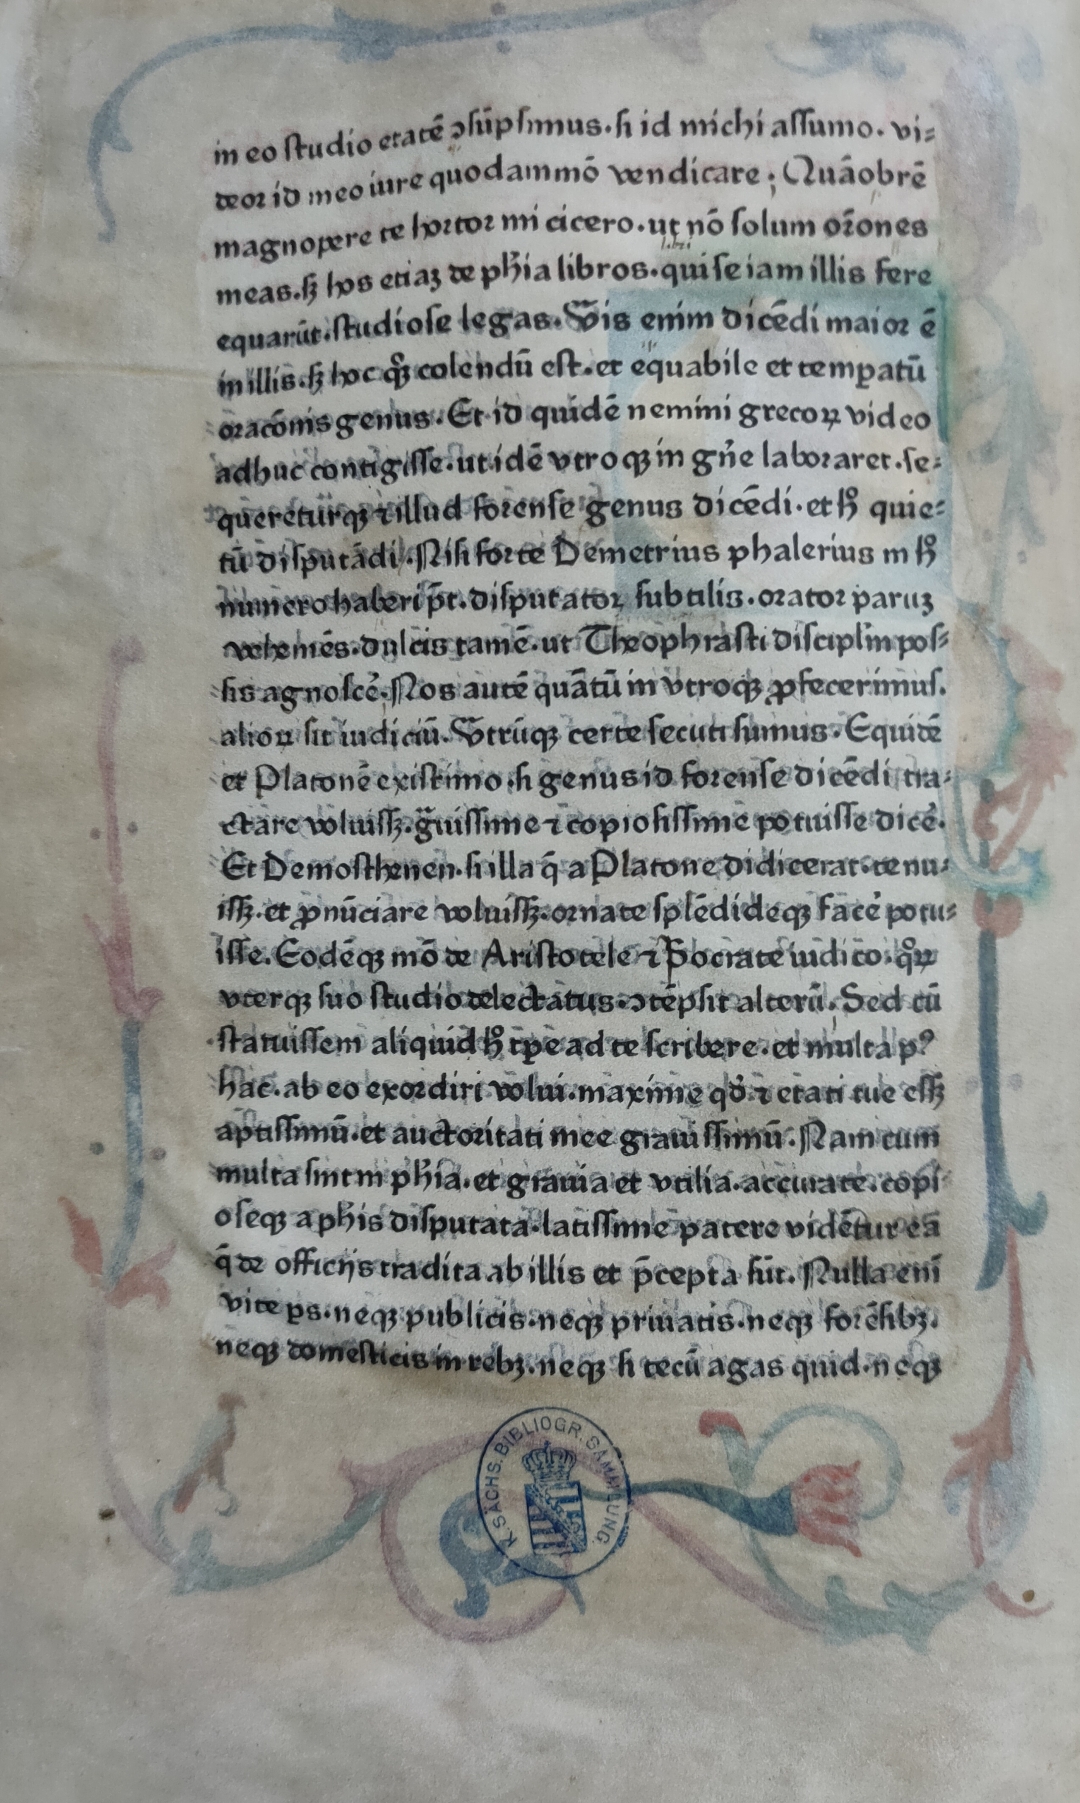 in eo studio etatē ↄsūpsimus. si id michi assumo. vi⸗
deor id meo iure quodammō vendicare; Quāobrē
magnopere te hortor mi cicero. ut nō solum or̄ones
meas. sꝫ hos etiaꝫ de ph̄ia libros. qui se iam illis fere
equarūt. studiose legas. Vis enim dicēdi maior ē
in illis. sꝫ hoc qͦꝫ colendū est. et equabile et temꝑatū
oracōnis genus. Et id quidē nemini grecoꝝ video
adhuc contigisse. ut idē vtroqꝫ in gn̄e laboraret. se⸗
quereturqꝫ ⁊ illud forense genus dicēdi. et hͦ quie⸗
tū disputādi. Nisi forte Demetrius phalerius in hͦ
numero haberi pt̄. disputator subtilis. orator paruꝫ
vehemēs. dulcis tamē. ut Theophrasti disciplm̄ pos⸗
sis agnosce᷑. Nos autē quātū in vtroqꝫ ꝓfecerimus.
alioꝝ sit iudiciū. Vtrūqꝫ certe secuti sumus. Equidē
et Platonē existimo. si genus id forense dicēdi tra⸗
ctare voluissꝫ. gᵃuissime ⁊ copiosissime potuisse dice᷑.
Et Demosthenen. si illa q̄ a Platone didicerat. tenu⸗
issꝫ. et ꝓnūciare voluissꝫ. ornate splēdideqꝫ face᷑ potu⸗
isse. Eodēqꝫ mō de Aristotele ⁊ Socrate iudico. qͦꝝ
vterqꝫ suo studio delectatus. ↄtēpsit alterū. Sed cū
statuissem aliquid hͦ tꝑe ad te scribere. et multa pꝰ
hac. ab eo exordiri volui. maxime qd̕ ⁊ etati tue essꝫ
aptissimū. et auctoritati mee grauissimū. Nam cum
multa sint in ph̄ia. et grauia et vtilia. accurate. copi
oseqꝫ a ph̄is disputata. latissime patere vidētur ea
q̄ de officijs tradita ab illis et p̄cepta sūt. Nulla eni
vite ꝑs. neqꝫ publicis. neqꝫ priuatis. neqꝫ forēsibꝫ.
neqꝫ domesticis in rebꝫ. neqꝫ si tecū agas quid. neqꝫ
K. SÄCHS. BIBLIOGR. SAMMLUNG